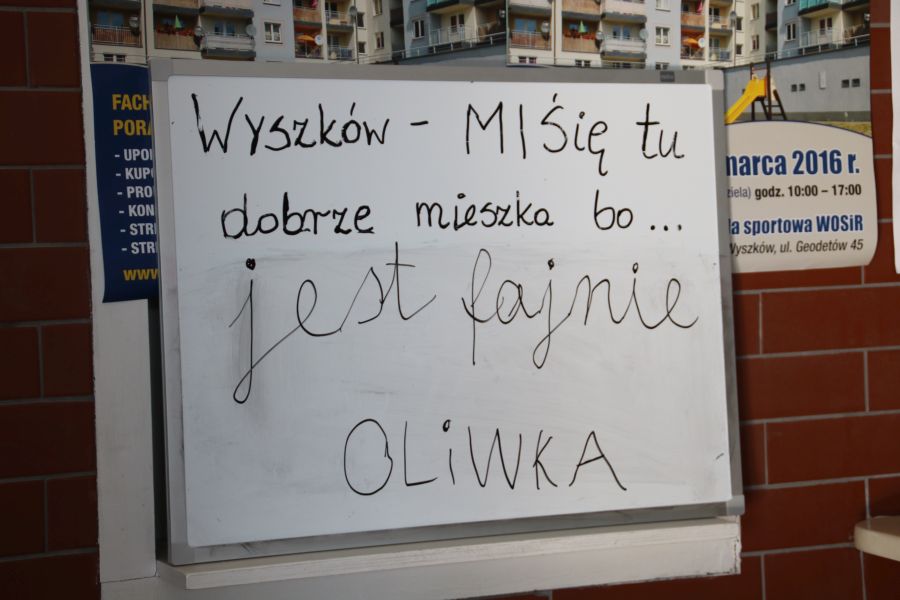 Wyszków - MIŚię tu
dobrze mieszka bo...
jest fajnie
OLiWKA
FACH
PORA
- UPO
- KUPO
- PRO
- KON
- STR
- STR
www
marca 2016 r.
ziela) godz. 10:00 – 17:00
la sportowa WOSiR
Wyszków, ul. Geodetów 45